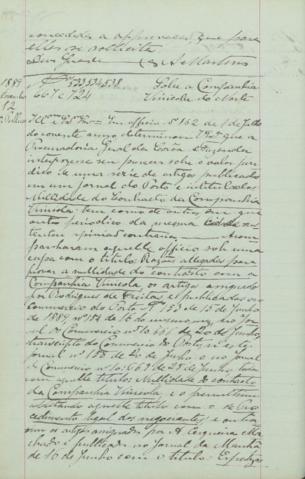 concedida a approvação que para
elles se sollicita
Deus Guarde (a) A. Martins
1889
12
667 e 724
Sobre a Companhia
Vinicola do Norte
Illmo e Exmo Snr. Em officio nº 162 de 1 de Julho
do corrente anno determinou V. Exª que a
Procuradoria Geral da Corôa e Fazenda
interpozesse seu parecer sobre o valor juri
dico de uma serie de artigos publicados
em um jornal do Porto e intitulados
Nullidade do Contracto da Companhia
Vinicola bem como de outros em que
outro periodico da mesma cidade sus
tentou opinião contraria. Acom
panharam aquelle officio sob uma
capa com o titulo Razões allegadas para
provar a nullidade do contracto com a
Companhia Vinicola, os artigos
por Rodrigues de Freitas, e publicados no
Commercio do Porto nº 153 de 15 de Junho
de 1889, nº 154 de 16 do mesmo, no Jor
nal do Commercio nº 10:661 de 20 de Junho,
transcripto do Commercio do Porto,
nº 158 de 20 de Junho e no Jornal
do Commercio nº de 25 de Junho, todos
com aquelle titulo Nullidade do contracto
da Companhia Vinicola, e
aquelle titulo com o de Pro
cedimento legal dos negociantes, e
os artigos por A. Cerqueira Ma
chado e publicados no Jornal da Manhã
de 10 de Junho com o titulo